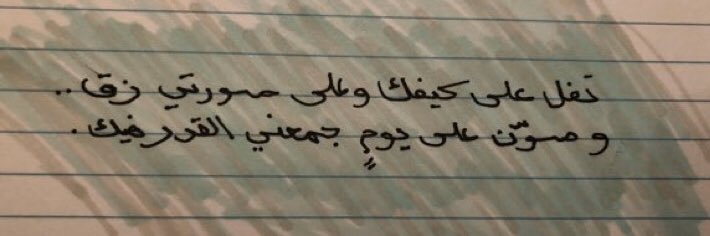 تفل على كيفك وعلى صورتي زق ..
و صوّت على يومٍ جمعني القدر فيك.